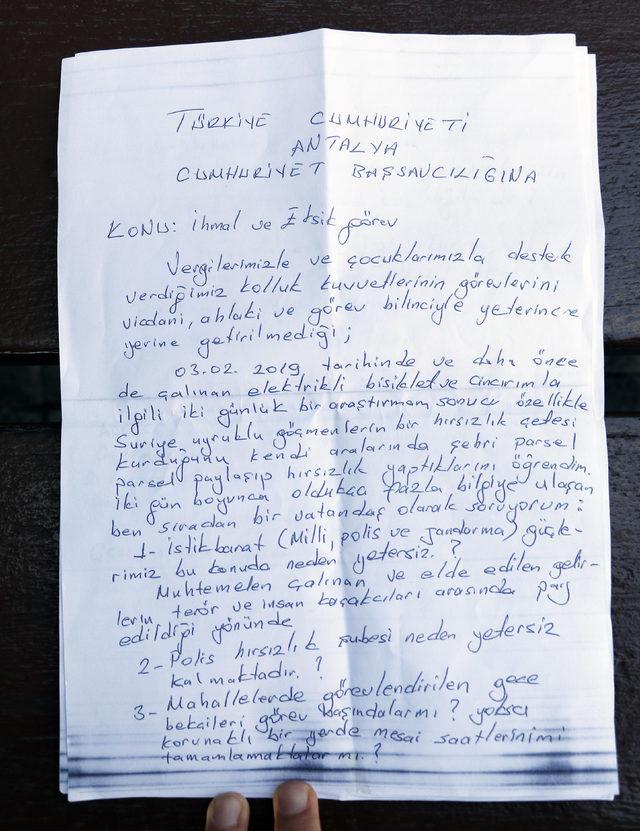 TÜRKİYE CUMHURİYETİ
ANTALYA
CUMHURİYET BAŞSAVCILIĞINA
KONU: İhmal ve Eksik görev
Vergilerimizle ve çocuklarımızla destek
verdiğimiz kolluk kuvvetlerinin görevlerini
vicdani, ahlaki ve görev bilinciyle yeterince
yerine getirilmediği;
03.02.2019 tarihinde ve daha önce
de çalınan elektrikli bisiklet ve cincırımla
ilgili iki günlük bir araştırmam sonucu özellikle
Suriye uyruklu göçmenlerin bir hırsızlık çetesi
kurduğunu kendi aralarında şehri parsel
parsel paylaşıp hırsızlık yaptıklarını öğrendim.
iki gün boyunca oldukça fazla bilgiye ulaşan
ben sıradan bir vatandaş olarak soruyorum:
1- istikbarat (Milli, polis ve jandarma) güçle-
rimiz bu konuda neden yetersiz.?
Muhtemelen çalınan ve elde edilen gelir-
lerin terör ve insan kaçakcıları arasında pay
edildiği yönünde
2- Polis hırsızlık şubesi neden yetersiz
kalmaktadır.?
3- Mahallelerde görevlendirilen gece
bekçileri görev başındalarmı? yoksa
korunaklı bir yerde mesai saatlerinimi
tamamlamaktalar mı.?